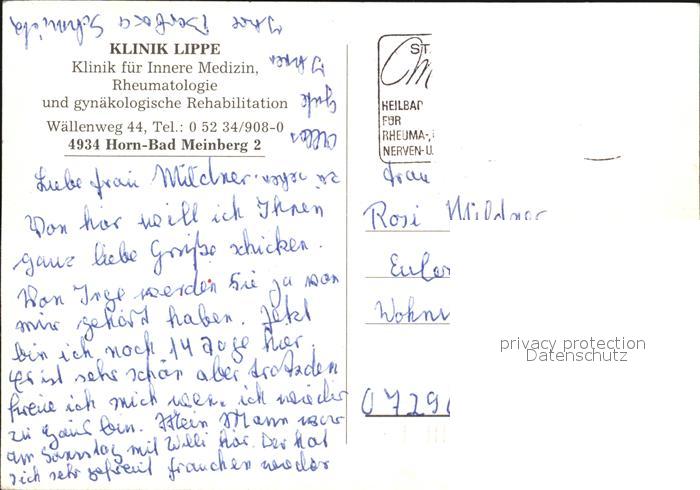 KLINIK LIPPE
Klinik für Innere Medizin,
Rheumatologie
und gynäkologische Rehabilitation
Wällenweg 44, Tel.: 0 52 34/908-0
4934 Horn-Bad Meinberg 2
Liebe Frau Mildner.
Von hir will ich Ihnen
ganz liebe Grüße schicken.
Von Inge werden Sie ja von
mir gehört haben. Jetzt
bin ich noch 14 Tage hir.
Es ist sehr schön aber trotzden
freue ich mich wen ich wieder
zu Haus bin. Mein Mann war
am Sonntag mit Willi hir. Der hat
sich sehr gefreut Frauchen wieder
zu sehen.
Alles
Gute
Ihnen
Ihre Barbara
ST
HEILBAD
FÜR
RHEUMA-,
NERVEN-U.
Frau
Rosi Mildner
Euler
Wohn
0729
privacy protection
Datenschutz